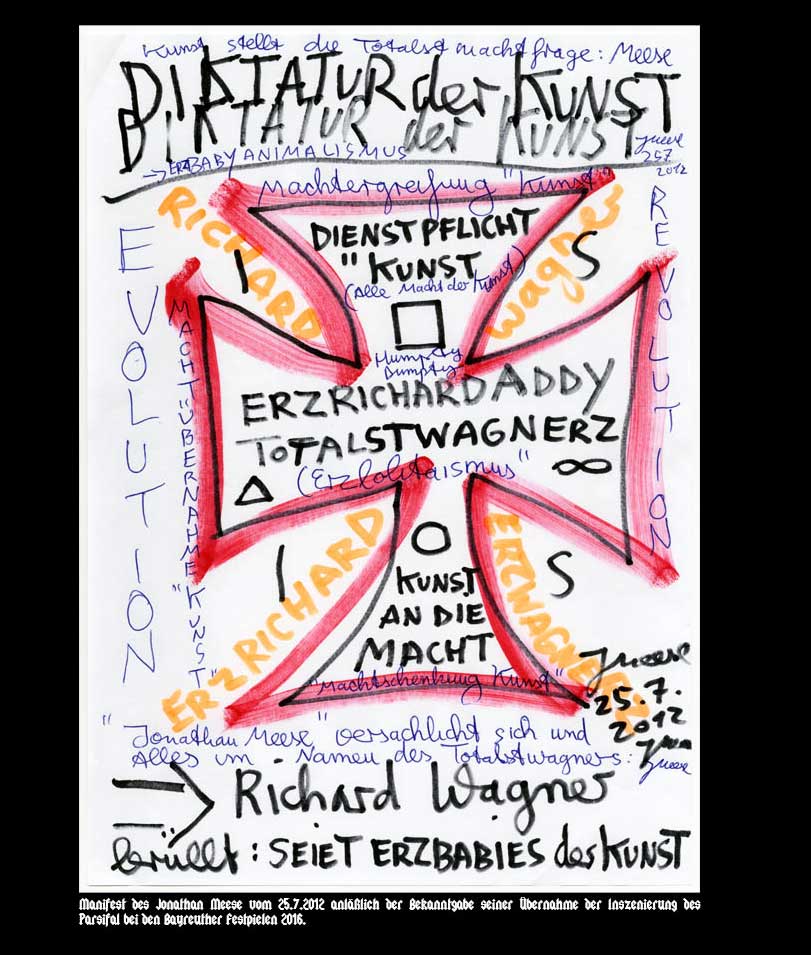 Kunst stellt die Totalstmachtfrage: Meese
DIKTATUR der KUNST
DIKTATUR der KUNST
Meese
25.7.
2012
→ ERZBABYANIMALISMUS
Machtergreifung "Kunst"
RICHARD
Wagner
EVOLUTION
REVOLUTION
MACHTÜBERNAHME "KUNST"
DIENSTPFLICHT
"KUNST
(Alle Macht der Kunst)
I
S
□
Humpty
Dumpty
ERZRICHARDADDY
TOTALSTWAGNERZ
(Erzlolitaismus"
△
∞
ERZRICHARD
I
O
S
KUNST
AN DIE
MACHT
"Machtschenkung Kunst"
Meese
25.7.
2012
Meese
"Jonathan Meese" versachlicht sich und
Alles im Namen des Totalstwagners:
⇒ Richard Wagner
brüllt: SEIET ERZBABIES der KUNST
Manifest des Jonathan Meese vom 25.7.2012 anläßlich der Bekanntgabe seiner Übernahme der Inszenierung des
Parsifal bei den Bayreuther Festpielen 2016.